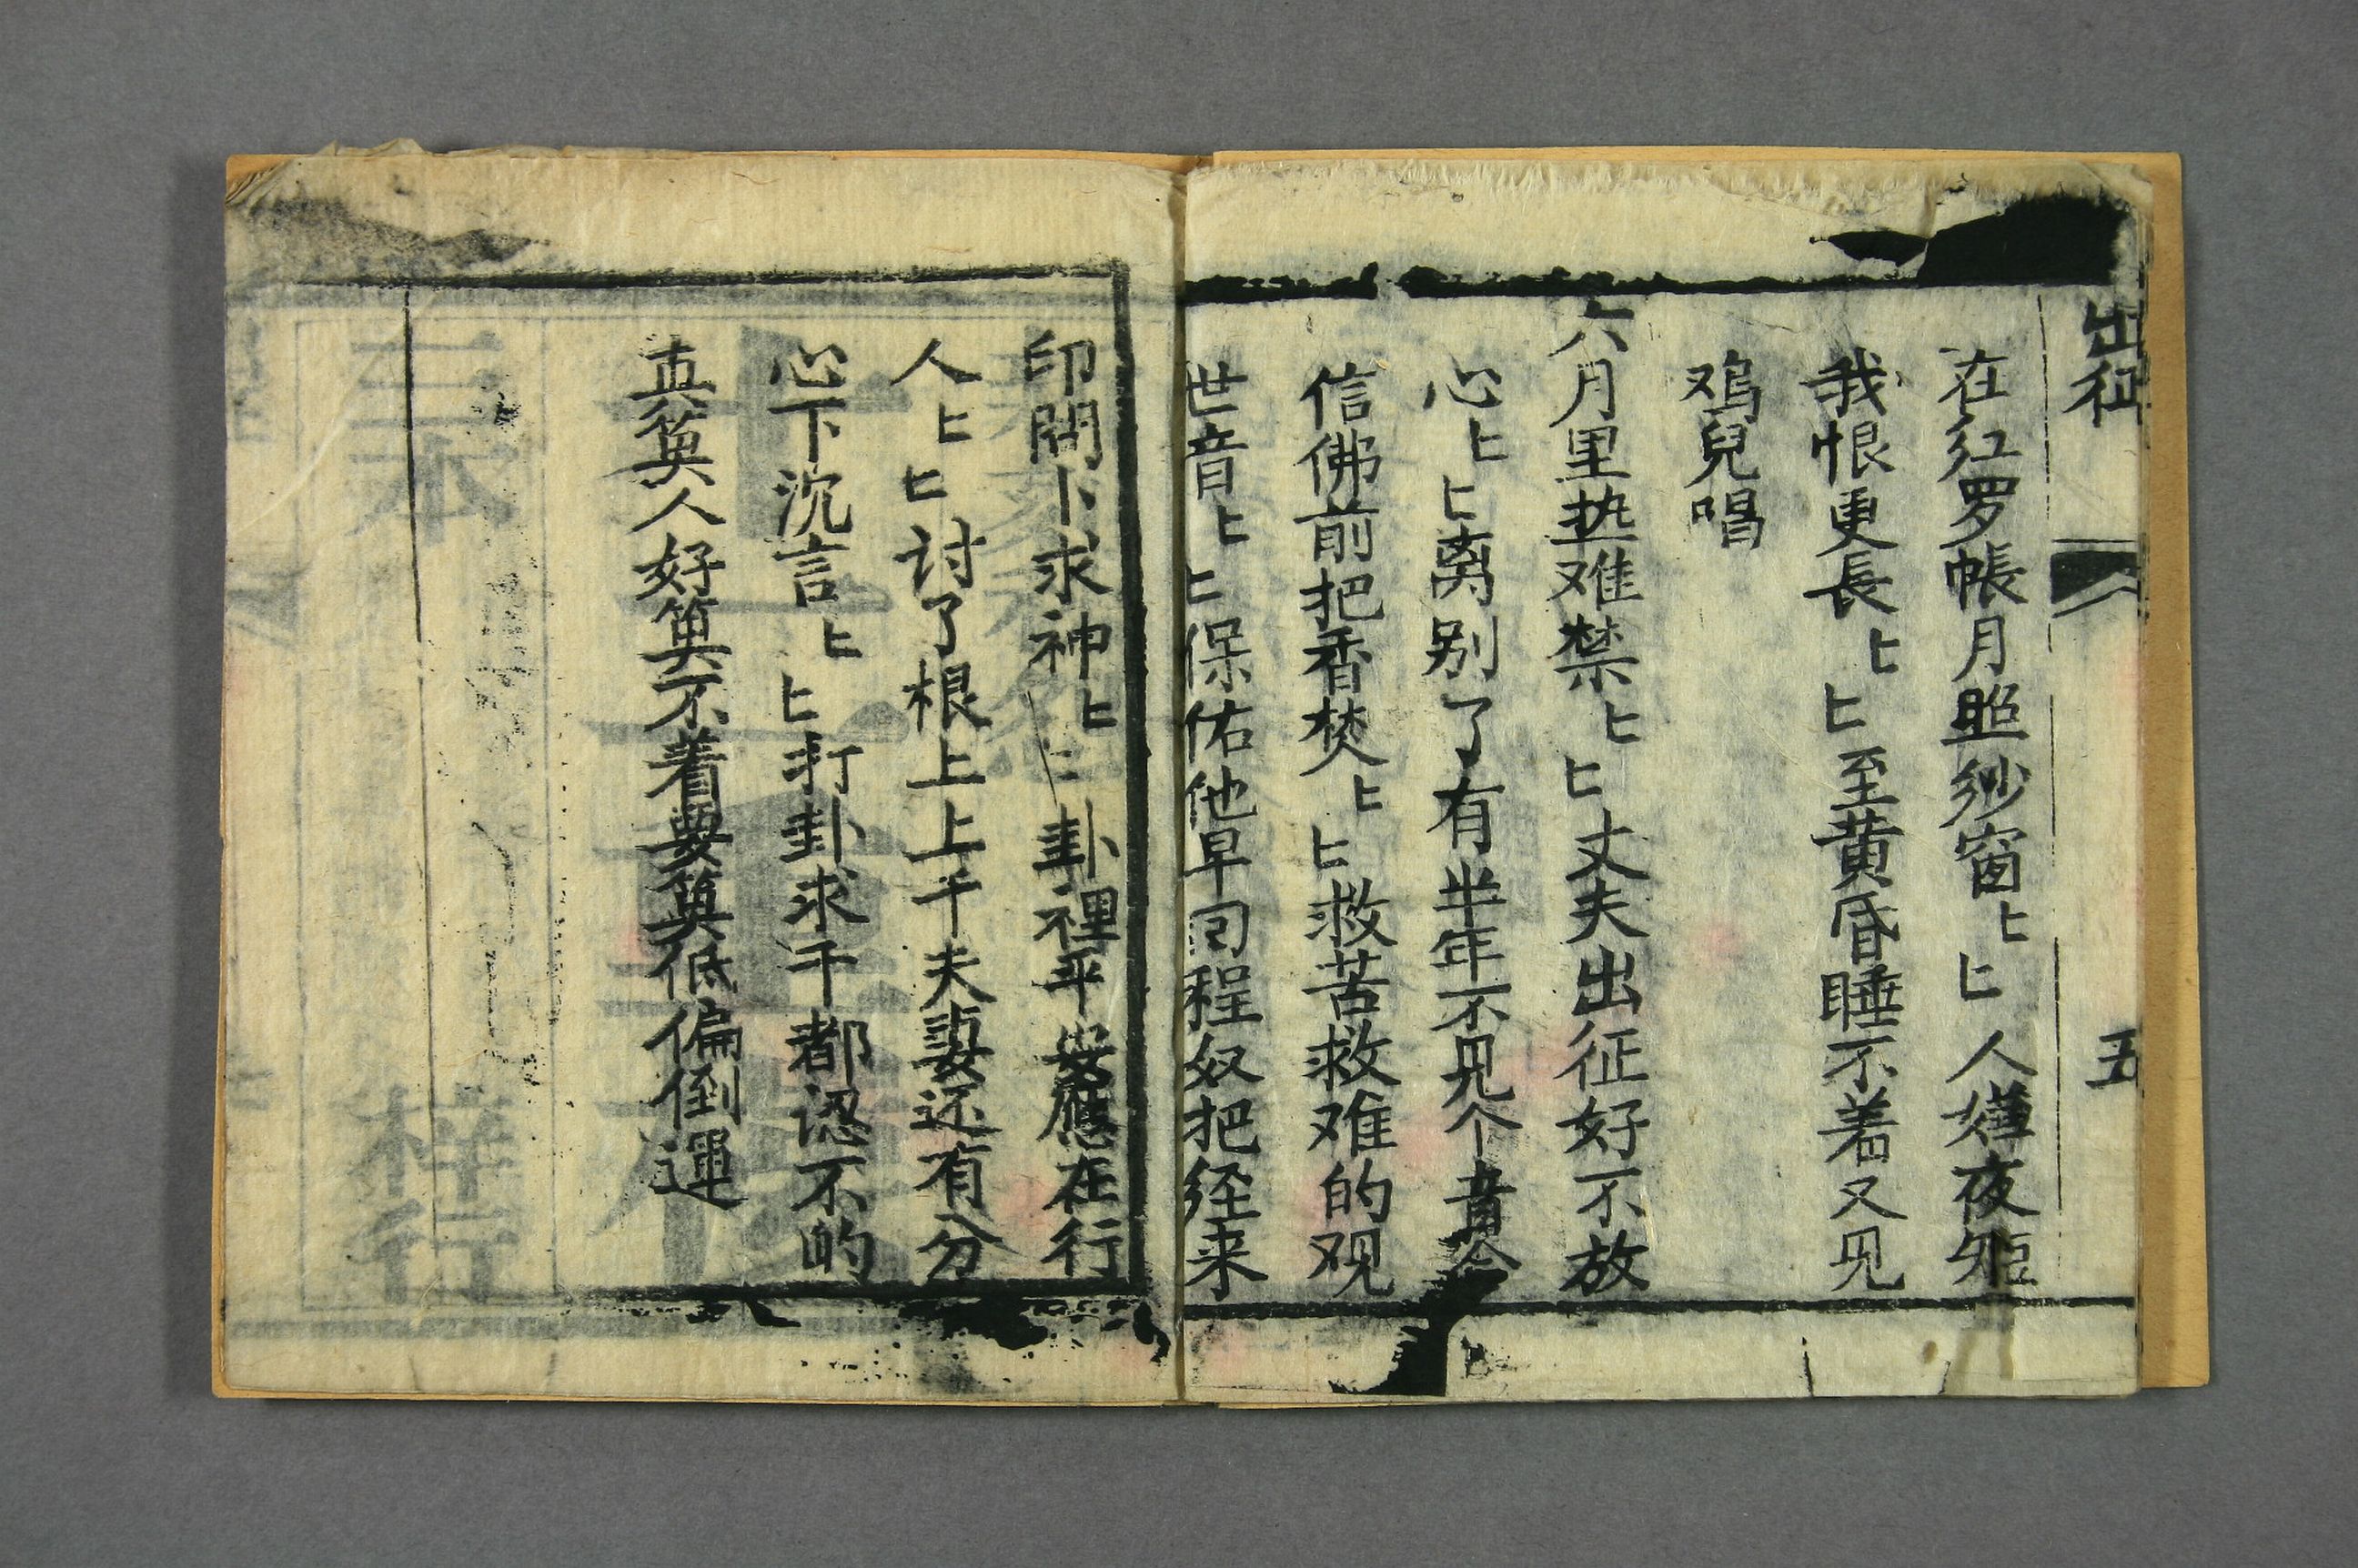 出征
五
在红罗帳月照纱窗匕匕人嫌夜短
我恨更長匕匕至黄昏睡不着又见
鸡兒唱
六月里热难禁匕匕丈夫出征好不放
心匕匕离别了有半年不见个音
信佛前把香焚匕匕救苦救难的观
世音匕匕保佑他早回程奴把经来
印問卜求神匕匕卦裡平安應在行
人匕匕讨了根上上千夫妻还有分
心下沉言匕匕打卦求千都認不的
真筭人好筭不着要筭低偏倒運